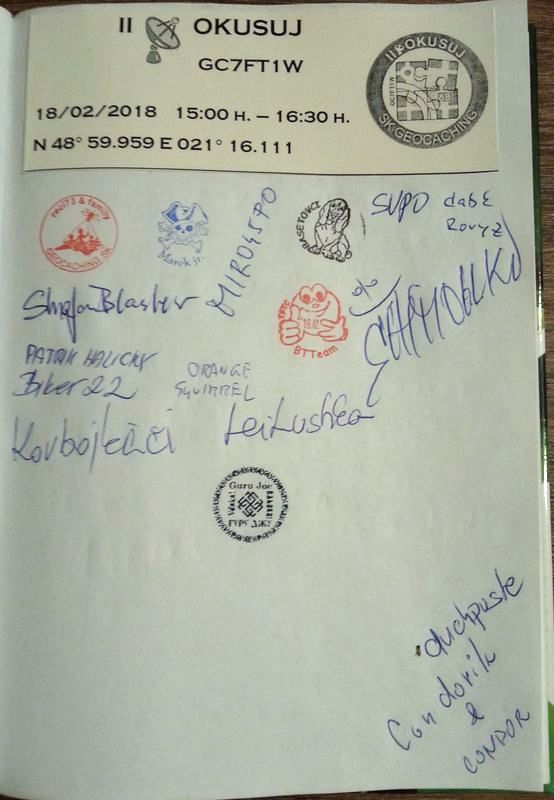 II OKUSUJ
GC7FT1W
18/02/2018 15:00 H. – 16:30 H.
N 48° 59.959 E 021° 16.111
II OKUSUJ
GC7FT1W
SK GEOCACHING
real73 & family
GEOCACHING SK
Marek jr.
MIRO45PO
BASETOVCI
SVPO
dabE
Rovyz
TATC
18.02
BTTeam
PATRIK HALICKY
Biker22
ORANGE
SQUIRREL
Kovbojleàči
Leilushka
Guru Joe
ГУРУ ДЖУ
duchpuste
Condorik
&
CONDOR